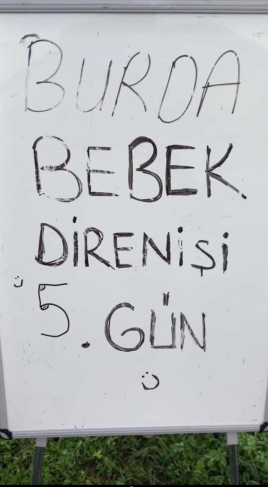 BURDA
BEBEK
DİRENİŞİ
5. GÜN